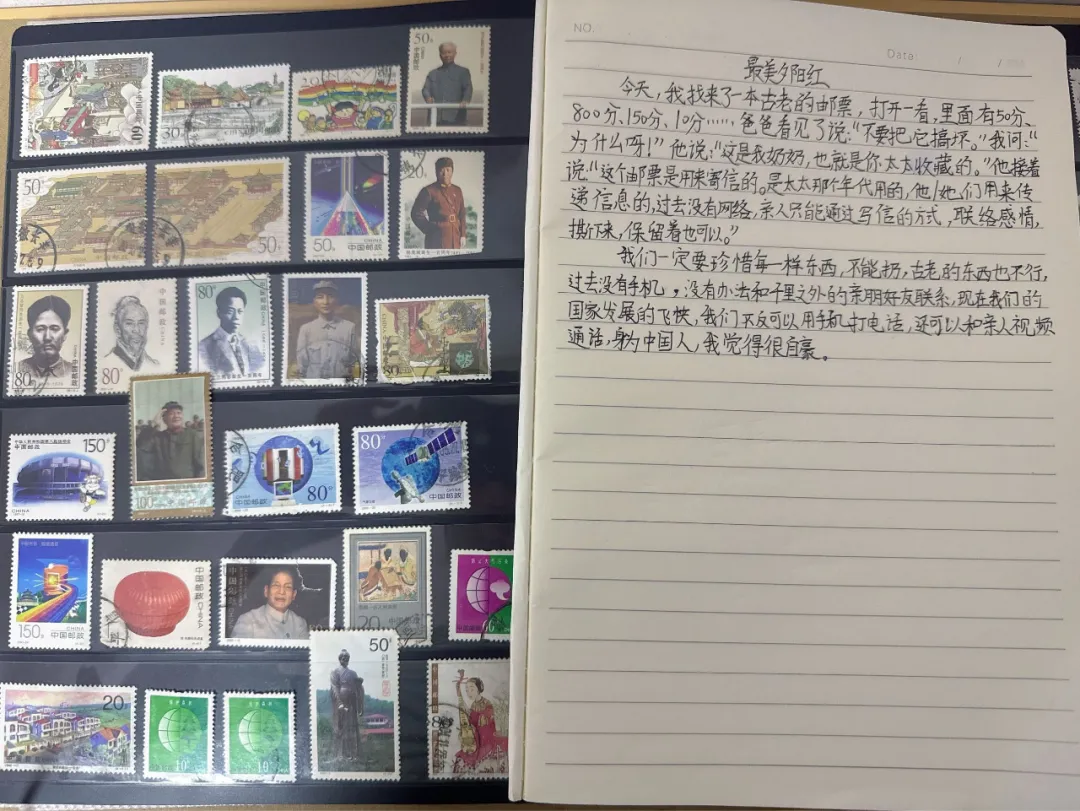 50分
30
50分
50分
50分
中国邮政
20
80分
80
中国邮政
80分
150分
中国邮政
100
80分
中国邮政
80分
中国邮政
150分
中国邮政
中国邮政
20
50分
20
10
10
NO.
Date: / /
最美夕阳红
今天,我找来了一本古老的邮票,打开一看,里面有50分、
800分、150分、10分……,爸爸看见了说:“不要把,它搞坏。”我问:“
为什么呀!”他说:“这是我奶奶,也就是你太太收藏的。”他接着
说“这个邮票是用来寄信的。是太太那个年代用的,他/她们用来传
递信息的,过去没有网络,亲人只能通过写信的方式,联络感情,
撕下来,保留着也可以。”
我们一定要珍惜每一样东西,不能扔,古老的东西也不行,
过去没有手机,没有办法和千里之外的亲朋好友联系,现在我们的
国家发展的飞快,我们不反可以用手机打电话,还可以和亲人视频
通话,身为中国人,我觉得很自豪。